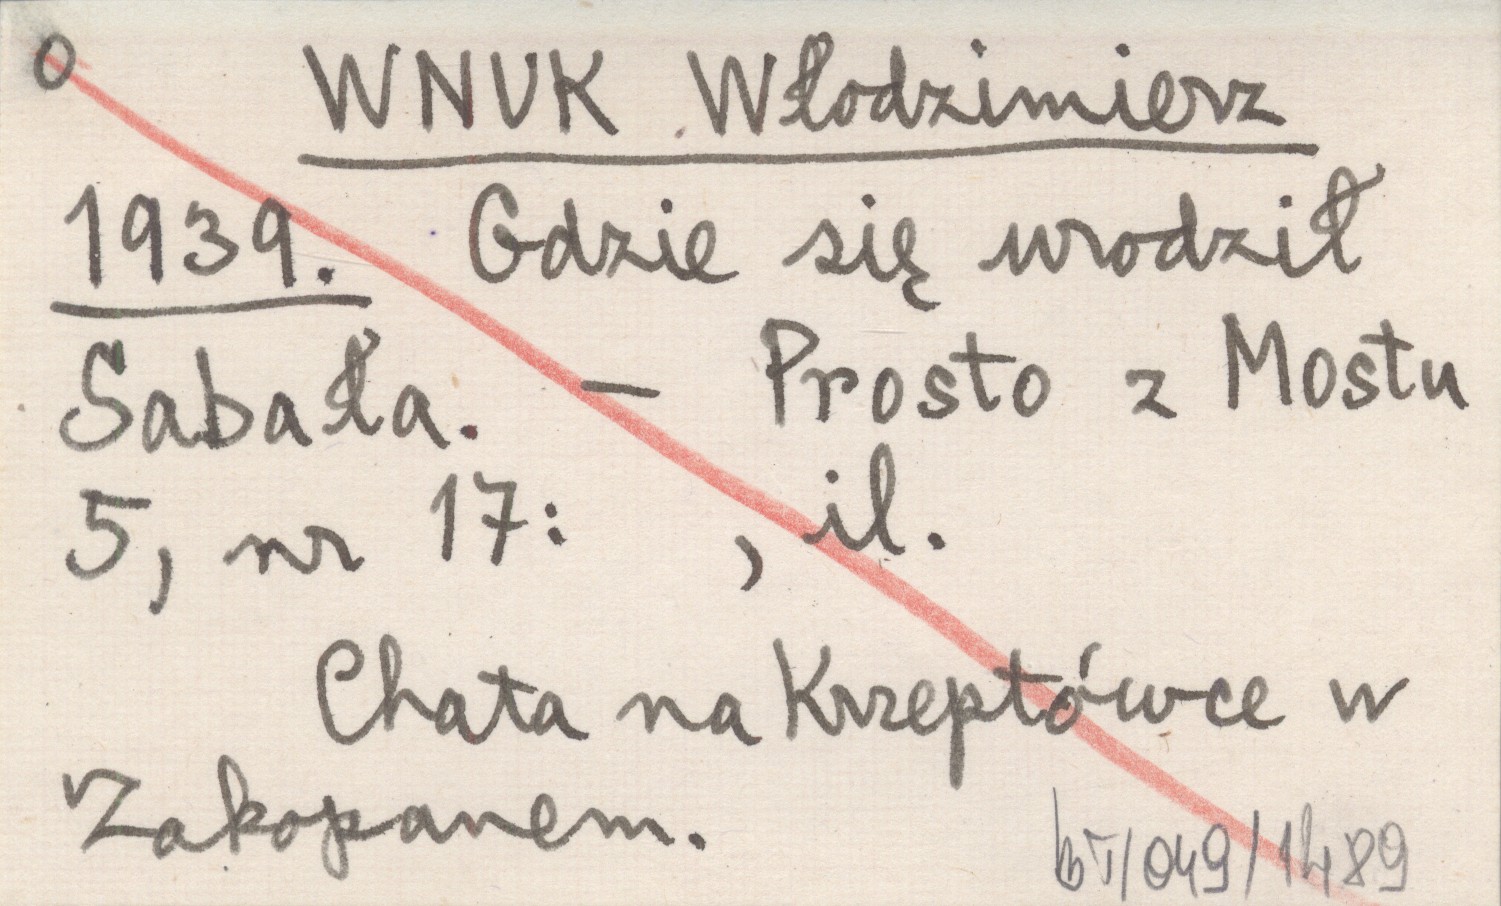 O
WNUK Włodzimierz
1939. Gdzie się urodził
Sabała. — Prosto z Mostu
5, nr 17: , il.
Chata na Krzeptówce w
Zakopanem.
BT/049/1489